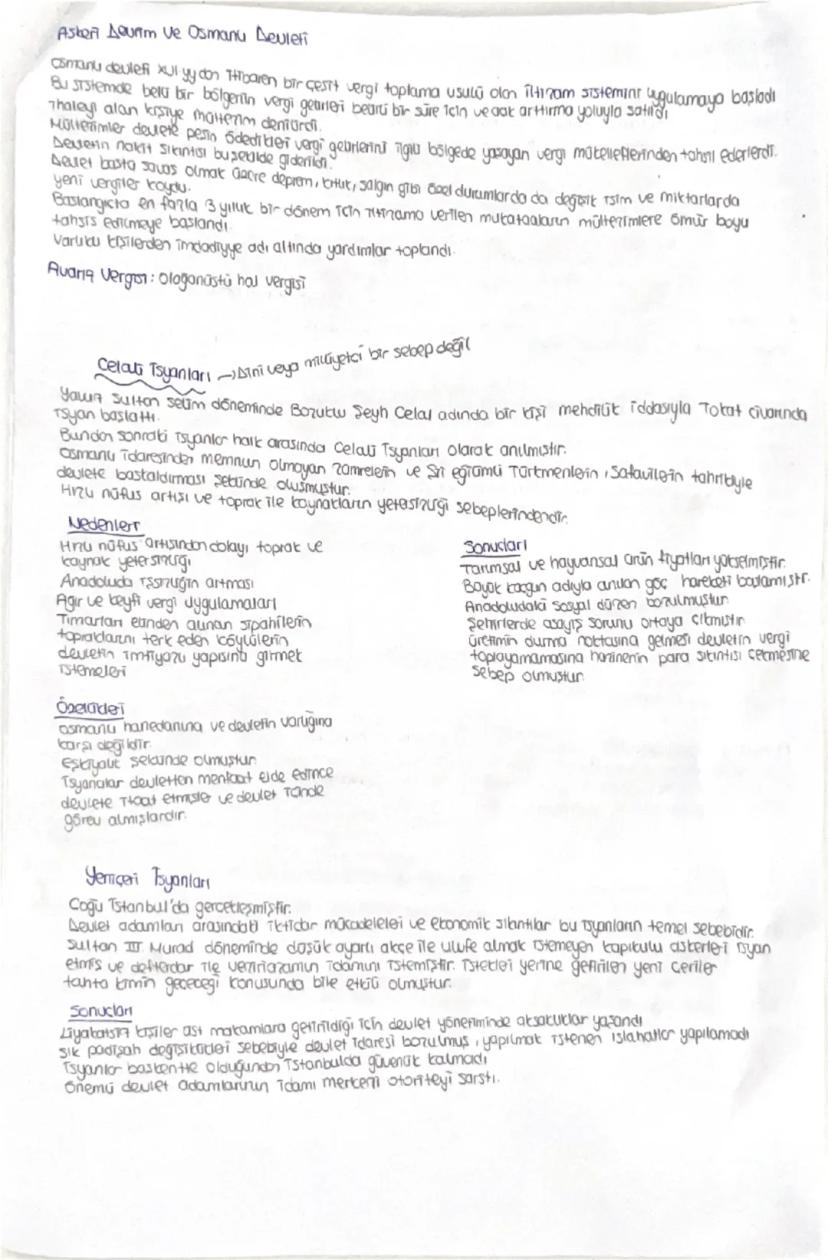 Askeri Devrim Ve Osmanlı Devleti
Osmanlı devleti XVI yy dan itibaren bir çeşit vergi toplama usulü olan iltizam sistemini uygulamaya başladı
Bu sistemde belli bir bölgenin vergi gelirleri belirli bir süre için ve açık arttırma yoluyla satıldı
İhaleyi alan kişiye mültezim denilirdi.
Mültezimler devlete peşin ödedikleri vergi gelirlerini ilgili bölgede yaşayan vergi mükelleflerinden tahsil ederlerdi.
Devletin nakit sıkıntısı bu şekilde giderildi.
Devlet başta savaş olmak üzere deprem, kıtlık, salgın gibi özel durumlarda da değişik isim ve miktarlarda
yeni vergiler koydu.
Başlangıçta en fazla 3 yıllık bir dönem için iltizama verilen mukataaların mültezimlere ömür boyu
tahsis edilmeye başlandı.
Varlıklı kişilerden imdadiyye adı altında yardımlar toplandı.
Avarız Vergisi: Olağanüstü hal vergisi
Celali İsyanları → Dini veya milliyetçi bir sebep değil
Yavuz Sultan Selim döneminde Bozoklu Şeyh Celal adında bir kişi mehdilik iddasıyla Tokat civarında
isyan başlattı.
Bundan sonraki isyanlar halk arasında Celali İsyanları olarak anılmıştır.
Osmanlı idaresinden memnun olmayan zümrelerin ve Şii eğilimli Türkmenlerin, Safavilerin tahrikiyle
devlete başkaldırması şeklinde oluşmuştur.
Hızlı nüfus artışı ve toprak ile kaynakların yetersizliği sebeplerindendir.
Nedenleri
Hızlı nüfus artışından dolayı toprak ve
kaynak yetersizliği
Anadoluda işsizliğin artması
Ağır ve keyfi vergi uygulamaları
Tımarları elinden alınan sipahilerin
topraklarını terk eden köylülerin
devletin imtiyazlı yapısına girmek
istemeleri
Sonuçları
Tarımsal ve hayvansal ürün fiyatları yükselmiştir.
Büyük kaçgun adıyla anılan göç hareketi başlamıştır.
Anadoludaki sosyal düzen bozulmuştur
Şehirlerde asayiş sorunu ortaya çıkmıştır
Üretimin durma noktasına gelmesi devletin vergi
toplayamamasına hazinenin para sıkıntısı çekmesine
sebep olmuştur
Özellikleri
Osmanlı hanedanına ve devletin varlığına
karşı değildir
Eşkiyalık şeklinde olmuştur
İsyancılar devletten menfaat elde edince
devlete itaat etmişler ve devlet içinde
görev almışlardır.
Yeniçeri İsyanları
Çoğu İstanbul'da gerçekleşmiştir.
Devlet adamları arasındaki iktidar mücadeleleri ve ekonomik sıkıntılar bu isyanların temel sebebidir.
Sultan III Murad döneminde düşük ayarlı akçe ile ulufe almak istemeyen kapıkulu askerleri isyan
etmiş ve defterdar ile veziriazamın idamını istemiştir. İstekleri yerine getirilen yeni çeriler
tahta kimin geçeceği konusunda bile etkili olmuştur.
Sonuçları
Liyakatsiz kişiler üst makamlara getirildiği için devlet yönetiminde aksaklıklar yaşandı
Sık padişah değişiklikleri sebebiyle devlet idaresi bozulmuş, yapılmak istenen ıslahatlar yapılamadı
İsyanlar başkentte olduğundan İstanbulda güvenlik kalmadı
Önemli devlet adamlarının idamı merkezi otoriteyi sarstı.